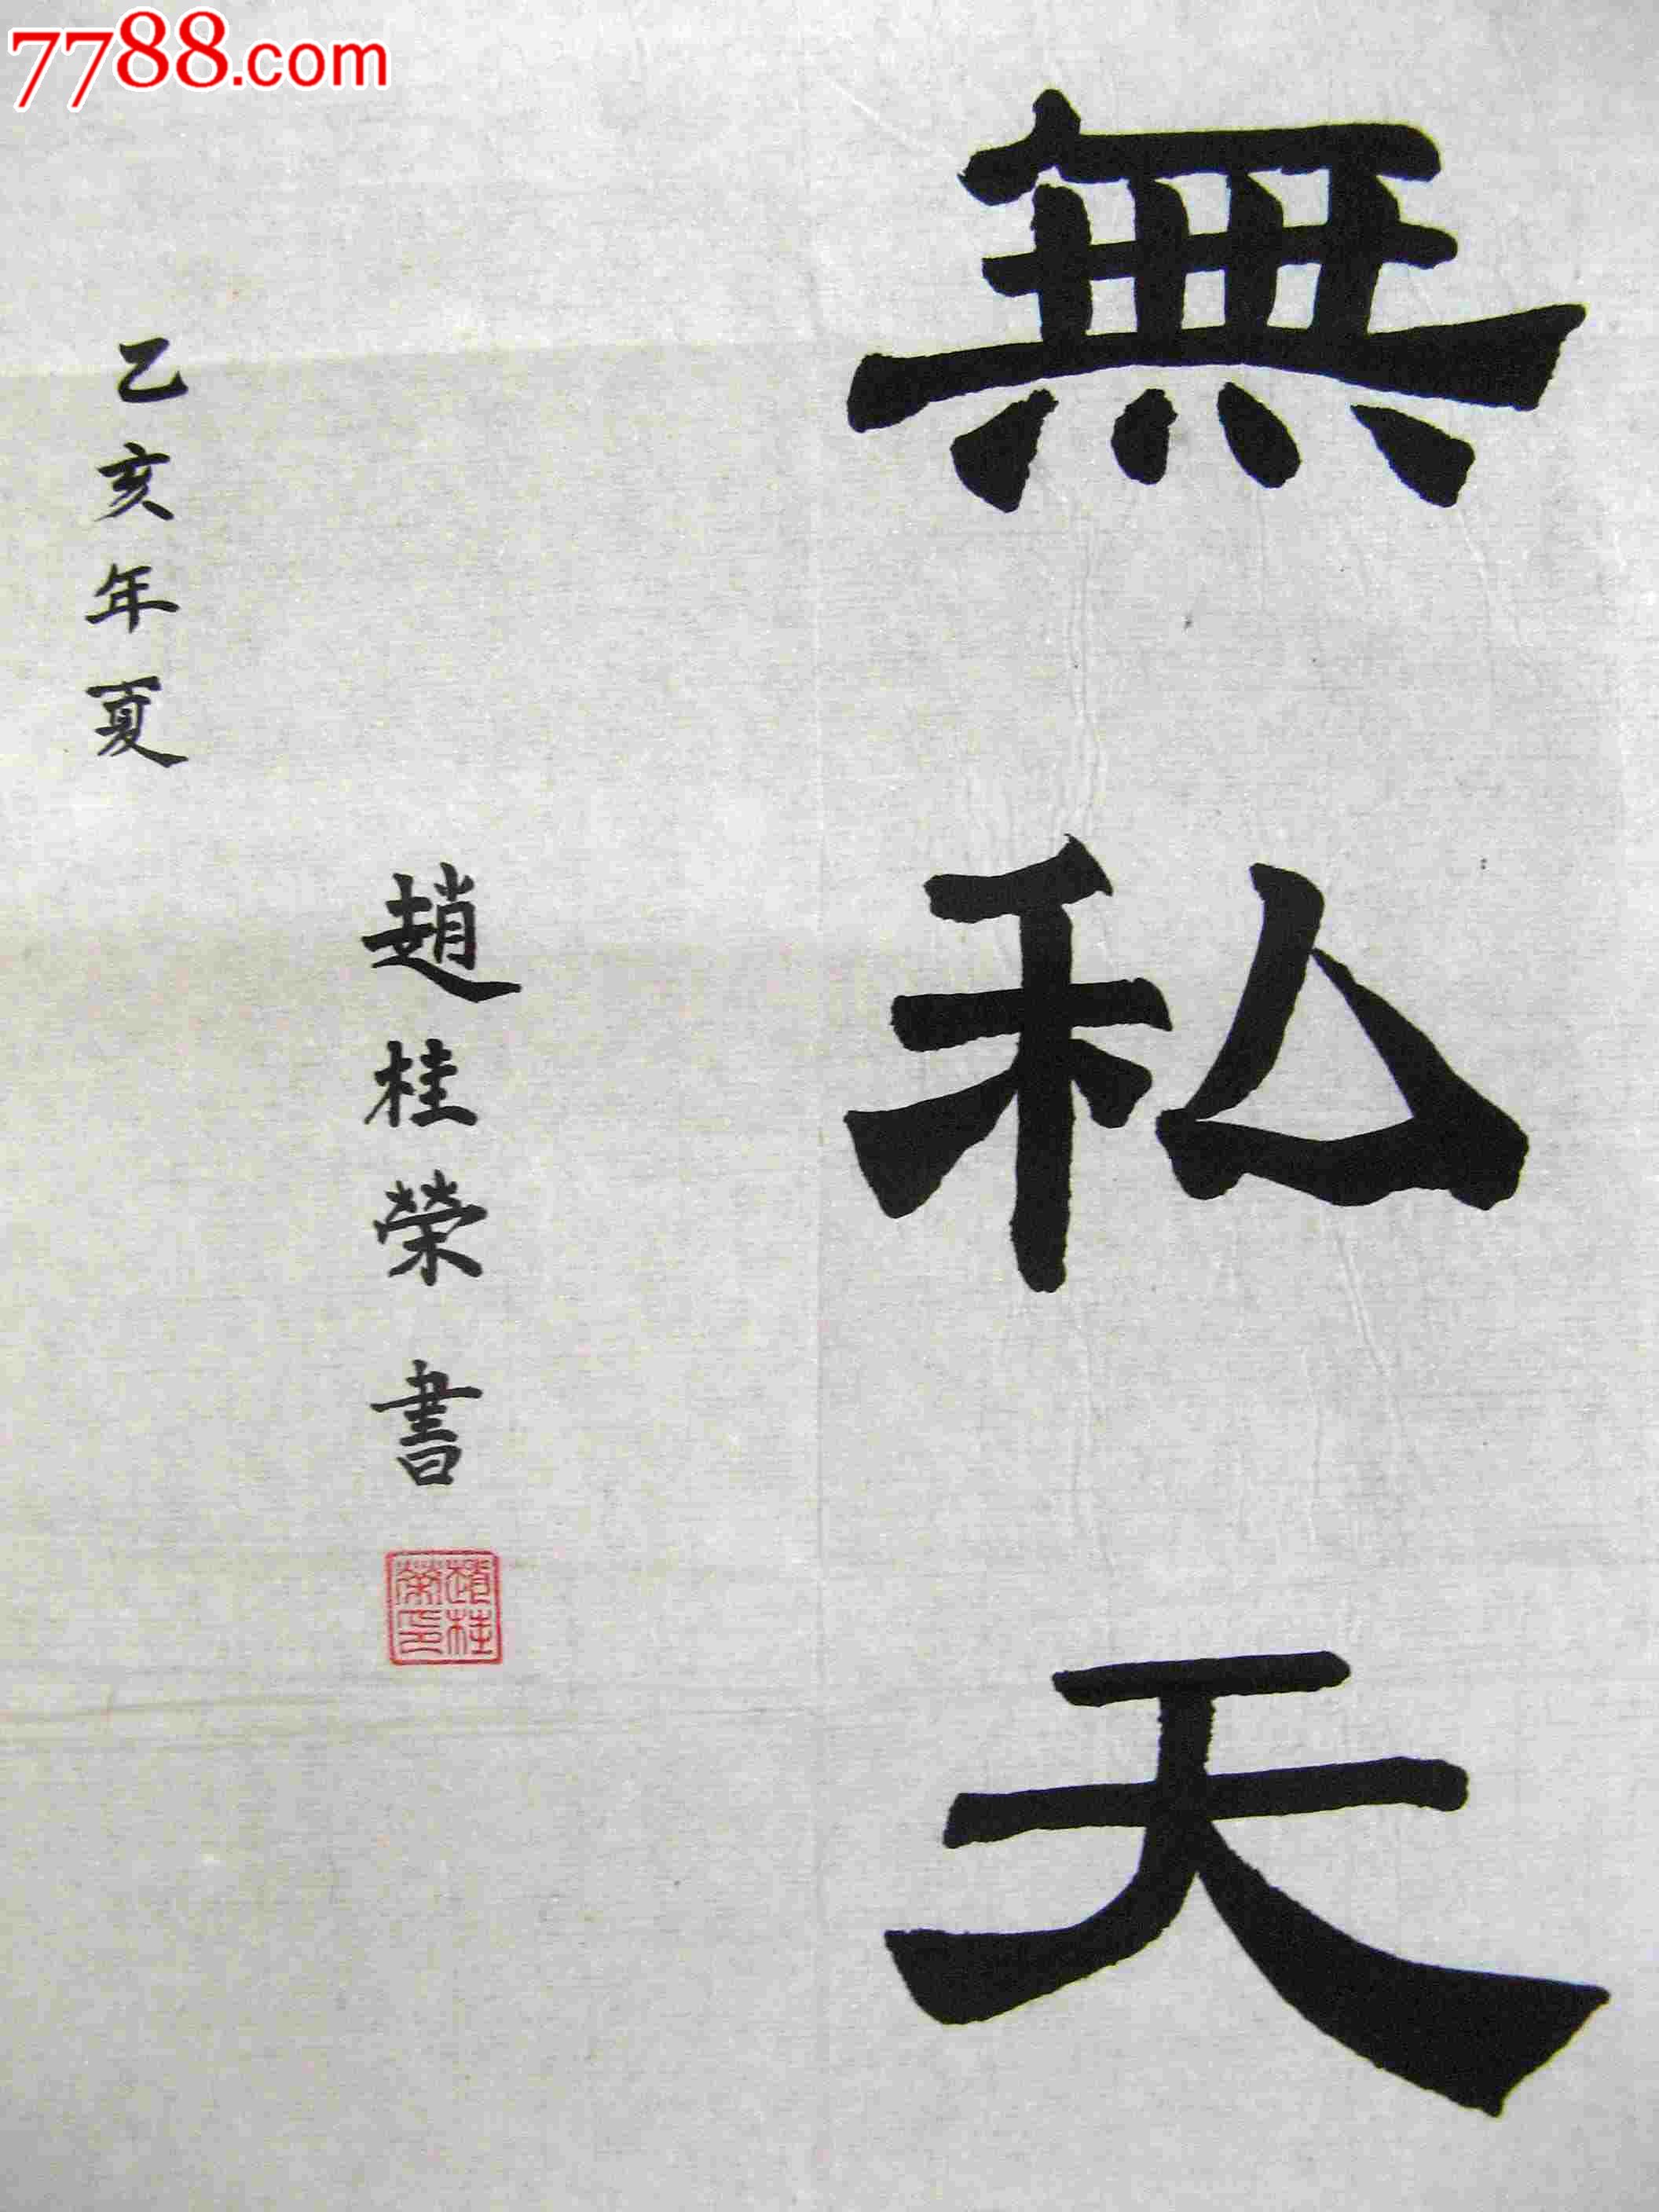 7788.com
無私天
乙亥年夏
趙桂榮書
趙桂
榮印